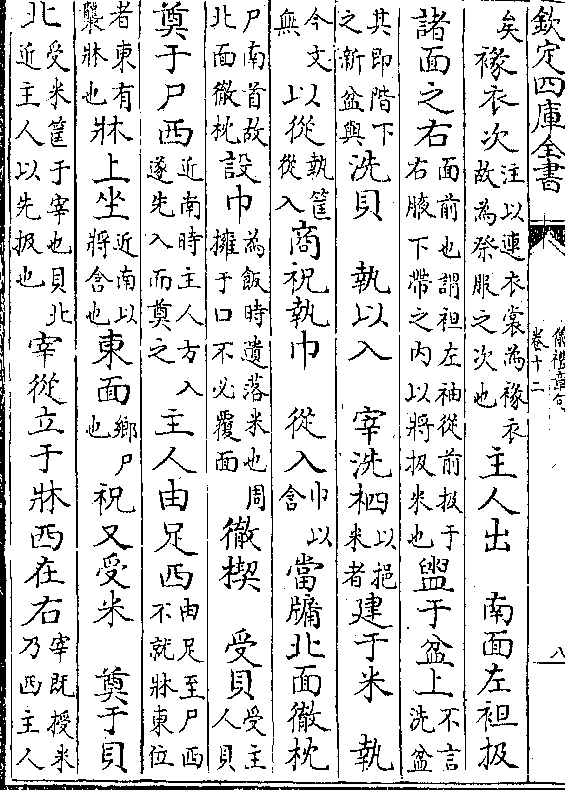 欽定四庫全書
儀禮章句
卷十二
八
矣褖衣次注以連衣裳為褖衣故為祭服之次也主人出南面左袒扱
諸面之右面前也謂袒左袖從前扱于右腋下帶之内以將扱米也盥于盆上不言洗盆
其即階下之新盆與洗貝執以入宰洗柶以挹米者建于米執
今文無以從執筐從入商祝執巾從入巾以含當牖北面徹枕
尸南首故北面徹枕設巾為飯時遺落米也周擁于口不必覆面徹楔受貝受主人貝
奠于尸西近南時主人方入遂先入而奠之主人由足西由足至尸西不就牀東位
者東有襲牀也牀上坐近南以將含也東面鄉尸也祝又受米奠于貝
北受米筐于宰也貝北近主人以先扱也宰從立于牀西在右宰既授米乃西主人